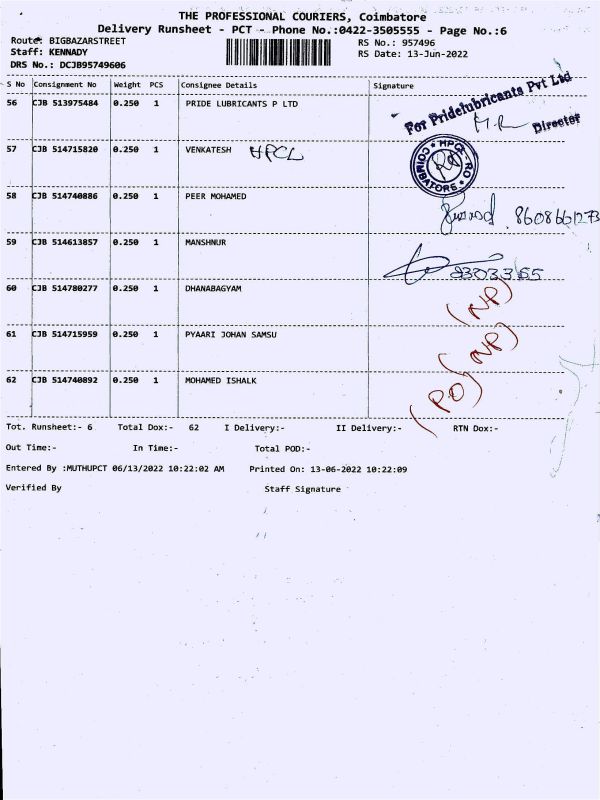 THE PROFESSIONAL COURIERS, Coimbatore
Delivery Runsheet - PCT - Phone No.:0422-3505555 - Page No.:6
Route: BIGBAZARSTREET
RS No.: 957496
Staff: KENNADY
RS Date: 13-Jun-2022
DRS No.: DCJB95749606
S No Consignment No Weight PCS Consignee Details Signature
56 CJB 513975484 0.250 1 PRIDE LUBRICANTS P LTD
For Pridelubricants Pvt Ltd
Director
57 CJB 514715820 0.250 1 VENKATESH HPCL
HPCL - RO COIMBATORE
58 CJB 514740886 0.250 1 PEER MOHAMED
8608661273
59 CJB 514613857 0.250 1 MANSHNUR
60 CJB 514780277 0.250 1 DHANABAGYAM (NP)
61 CJB 514715959 0.250 1 PYAARI JOHAN SAMSU (NP)
62 CJB 514740892 0.250 1 MOHAMED ISHALK (PO)
Tot. Runsheet:- 6 Total Dox:- 62 I Delivery:- II Delivery:- RTN Dox:-
Out Time:- In Time:- Total POD:-
Entered By :MUTHUPCT 06/13/2022 10:22:02 AM Printed On: 13-06-2022 10:22:09
Verified By Staff Signature